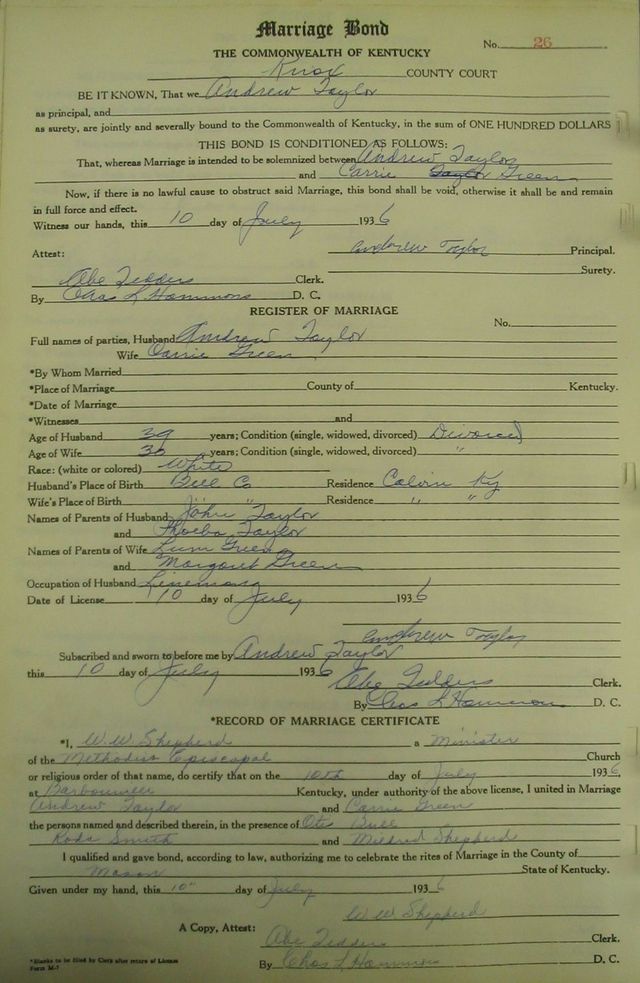 Marriage Bond
THE COMMONWEALTH OF KENTUCKY
No. 26
Knox COUNTY COURT
BE IT KNOWN, That we Andrew Taylor
as principal, and
as surety, are jointly and severally bound to the Commonwealth of Kentucky, in the sum of ONE HUNDRED DOLLARS
THIS BOND IS CONDITIONED AS FOLLOWS:
That, whereas Marriage is intended to be solemnized between Andrew Taylor
and Carrie Taylor Green
Now, if there is no lawful cause to obstruct said Marriage, this bond shall be void, otherwise it shall be and remain
in full force and effect.
Witness our hands, this 10 day of July 1936
Andrew Taylor Principal.
Attest:
Surety.
Abe Tedders Clerk.
By Chas L Hammons D. C.
REGISTER OF MARRIAGE
No.
Full names of parties, Husband Andrew Taylor
Wife Carrie Green
*By Whom Married
*Place of Marriage County of Kentucky.
*Date of Marriage
*Witnesses and
Age of Husband 39 years; Condition (single, widowed, divorced) Divorced
Age of Wife 30 years; Condition (single, widowed, divorced) "
Race: (white or colored) White
Husband's Place of Birth Bell Co Residence Calvin Ky
Wife's Place of Birth " " Residence " "
Names of Parents of Husband John Taylor
and Phoeba Taylor
Names of Parents of Wife Lum Green
and Margaret Green
Occupation of Husband
Date of License 10 day of July 1936
Andrew Taylor
Subscribed and sworn to before me by Andrew Taylor
this 10 day of July 1936 Abe Tedders Clerk.
By Chas L Hammons D. C.
*RECORD OF MARRIAGE CERTIFICATE
*I, W. W. Shepherd a Minister
of the Methodist Episcopal Church
or religious order of that name, do certify that on the 10th day of July 1936,
at Kentucky, under authority of the above license, I united in Marriage
Andrew Taylor and Carrie Green
the persons named and described therein, in the presence of Bull
Smith and Mildred Shepherd
I qualified and gave bond, according to law, authorizing me to celebrate the rites of Marriage in the County of
Mason State of Kentucky.
Given under my hand, this 10" day of July 1936
W. W. Shepherd
A Copy, Attest:
Abe Tedders Clerk.
*Blanks to be filled by Clerk after return of License
Form M-1
By Chas L Hammons D. C.